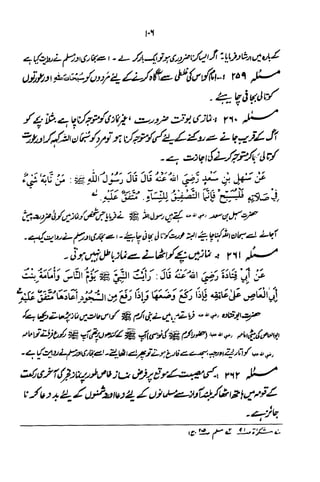 ۱۰۶
کے بارہ میں ارشاد فرمایا۔ اگر ایسا کرنا ضروری ہو تو ایک بار کر لے ۔ اسے بخاری اور مسلم نے روایت کیا ہے
مسئلہ ۲۵۹ ۔ امام کو اس کی غلطی سے آگاہ کرنے کے لئے مردوں کو سبحان اللہ اور عورتوں کو
تالی بجانی چاہیئے ۔
مسئلہ ۲۶۰ ۔ نمازی بوقت ضرورت ، غیر نمازی کو متوجہ کرنا چاہے مثلاً بچے کو
آگ کے قریب جانے سے روکنے کے لئے کسی کو متوجہ کرنا ہو تو مرد کو سبحان اللہ کہہ کر اور عورت
کو تالی بجا کر متوجہ کرنے کی اجازت ہے ۔
عَنْ سَهْلِ بْنِ سَعْدٍ رَضِيَ اللهُ عَنْهُ قَالَ قَالَ رَسُولُ اللهِ ﷺ : مَنْ نَابَهُ شَيْءٌ
فِي صَلَاتِهِ فَلْيُسَبِّحْ فَإِنَّمَا التَّصْفِيقُ لِلنِّسَاءِ . مُتَّفَقٌ عَلَيْهِ.
حضرت سہل بن سعد کہتے ہیں رسول اللہ ﷺ نے فرمایا جس شخص کو نماز میں کوئی ضرورت پیش
آجائے اسے سبحان اللہ کہنا چاہیئے البتہ عورت کو تالی بجانی چاہیئے ۔ اسے بخاری اور مسلم نے روایت کیا ہے ۔
مسئلہ ۲۶۱ ۔ نماز میں بچے کو اٹھانے سے نماز باطل نہیں ہوتی ۔
عَنْ أَبِي قَتَادَةَ رَضِيَ اللهُ عَنْهُ قَالَ : رَأَيْتُ النَّبِيَّ ﷺ يَؤُمُّ النَّاسَ وَأُمَامَةُ بِنْتُ
أَبِي الْعَاصِ عَلَى عَاتِقِهِ فَإِذَا رَكَعَ وَضَعَهَا وَإِذَا رَفَعَ مِنَ السُّجُودِ أَعَادَهَا مُتَّفَقٌ عَلَيْهِ
حضرت ابو قتادہ فرماتے ہیں میں نے نبی اکرم ﷺ کو اس حالت میں نماز پڑھاتے دیکھا ہے کہ
ابو العاص کی بیٹی امامہ (حضور اکرم ﷺ کی نواسی) آپ ﷺ کے کندھوں پر تھی آپ ﷺ رکوع فرماتے تو امامہ
کو اتار دیتے اور جب سجدے سے فارغ ہوتے تو پھر اسے اٹھا لیتے ۔ اسے بخاری اور مسلم نے روایت کیا ہے ۔
مسئلہ ۲۶۲ ۔ کسی مصیبت کے موقع پر فرض نماز خاص طور پر نماز فجر کی آخری رکعت
کے قومہ میں ہاتھ اٹھا کر بلند آواز سے مسلمانوں کے لئے دعا اور دشمنوں کے لئے بددعا کرنا
جائز ہے ۔